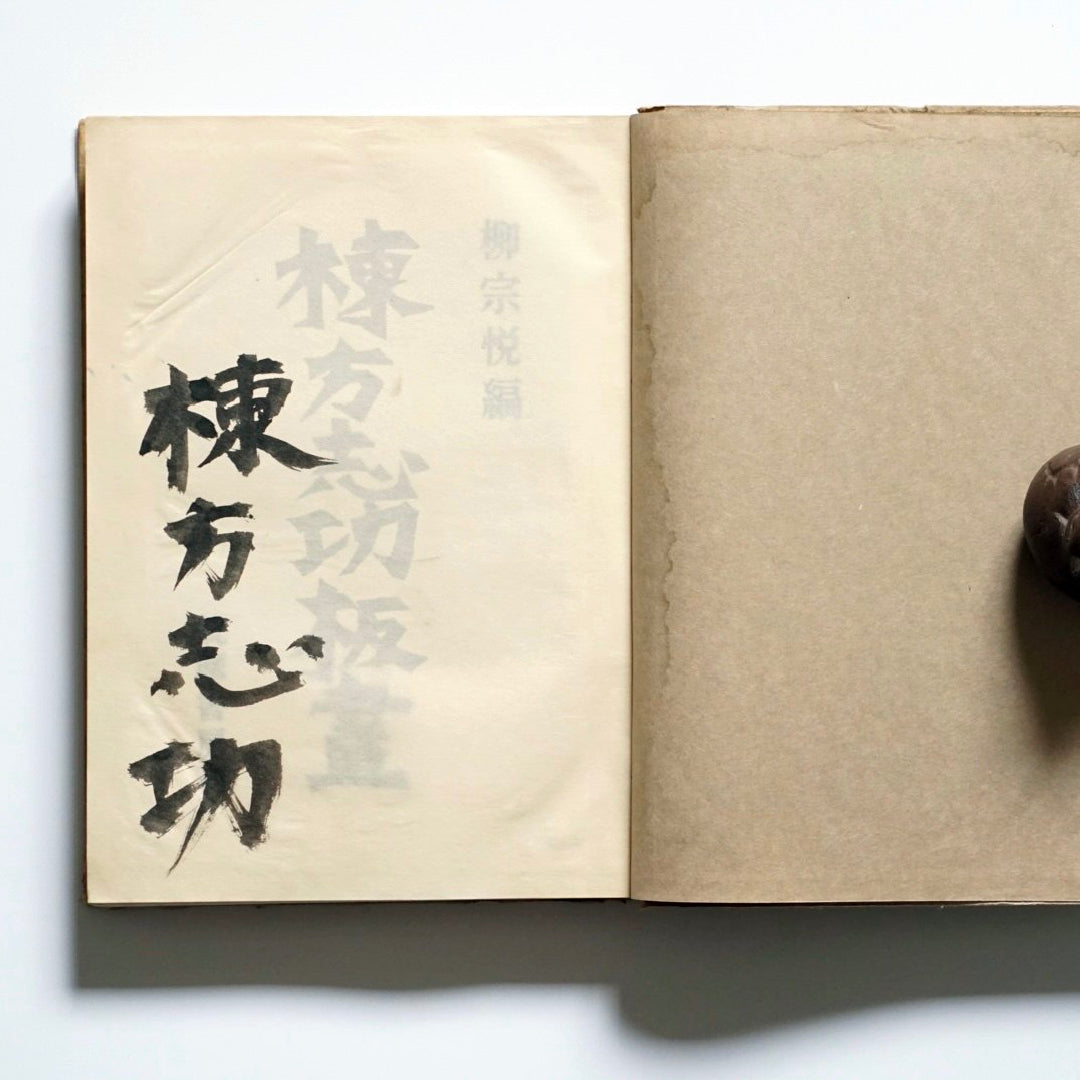 柳宗悦編
棟方志功板畫
棟方志功